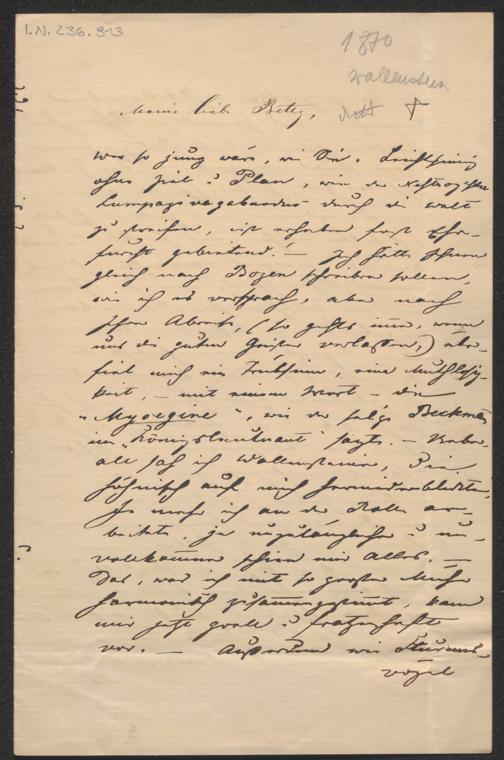 I.N. 236.913
1870
Wallenstein
Meine liebe Betty,
wer so jung wäre, wie Sie! Leichtsinnig
ohne Ziel u Plan, wie der Nestroy'sche
Lumpazivagabundus durch die Welt
zu streifen, ist erhaben fast Ehr-
furcht gebietend. — Ich hätte Ihnen
gleich nach Bozen schreiben sollen,
wie ich es versprach, aber nach
Ihrer Abreise, (so gehts immer, wenn
uns die guten Geister verlassen,) über-
fiel mich ein Trübsinn, eine Muthlosig-
keit, — mit einem Wort — die
"Myoegine", wie der selige Beckmann
im "Königslieutenant" sagte. — Ueber-
all sah ich Wallensteine, die
höhnisch auf mich herniederblickten.
Je mehr ich an der Rolle ar-
beitete, je unzulänglicher u un-
vollkommener schien mir Alles. —
Das, was ich mit so großer Mühe
harmonisch zusammengestimmt, kam
mir jetzt grell u fratzenhaft
vor. — Außerdem wie Sturm-
vögel